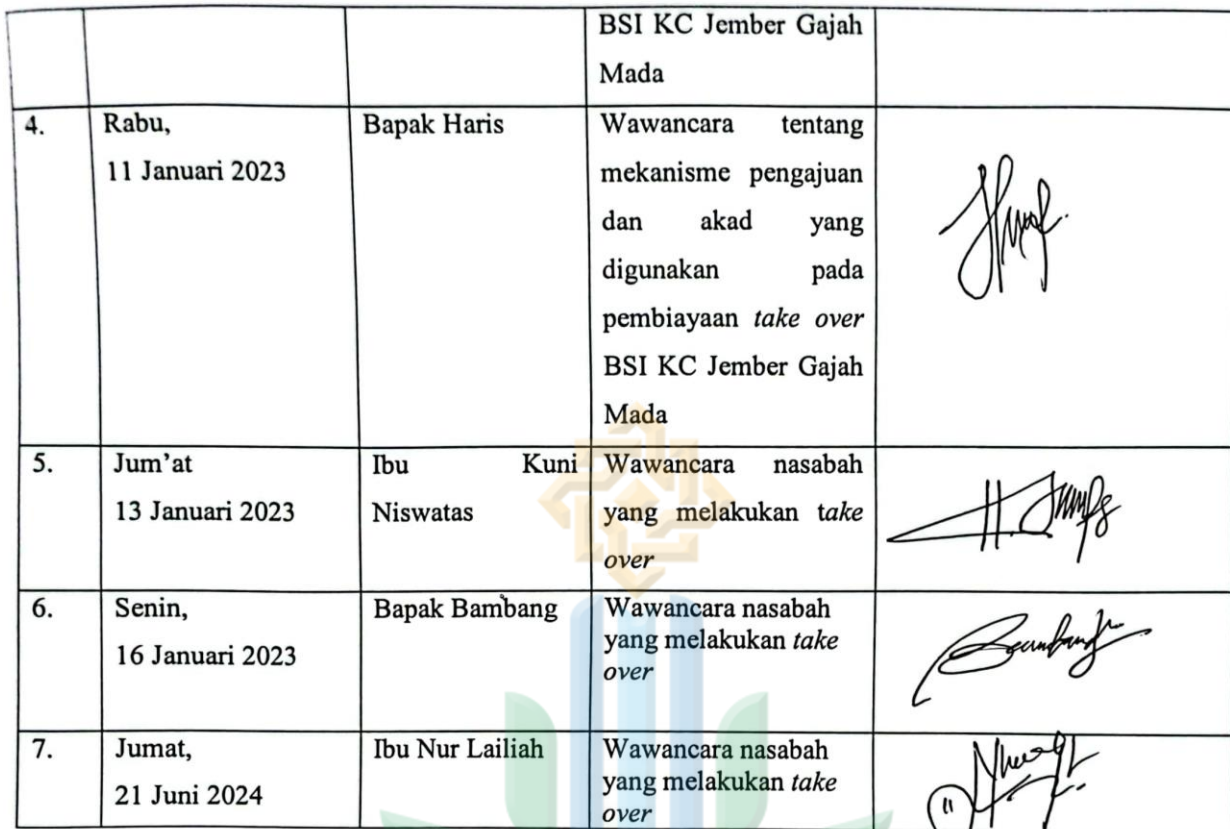 BSI KC Jember Gajah
Mada
4.
Rabu,
11 Januari 2023
Bapak Haris
Wawancara tentang
mekanisme pengajuan
dan akad yang
digunakan pada
pembiayaan take over
BSI KC Jember Gajah
Mada
5.
Jum'at
13 Januari 2023
Ibu Kuni
Niswatas
Wawancara nasabah
yang melakukan take
over
6.
Senin,
16 Januari 2023
Bapak Bambang
Wawancara nasabah
yang melakukan take
over
7.
Jumat,
21 Juni 2024
Ibu Nur Lailiah
Wawancara nasabah
yang melakukan take
over